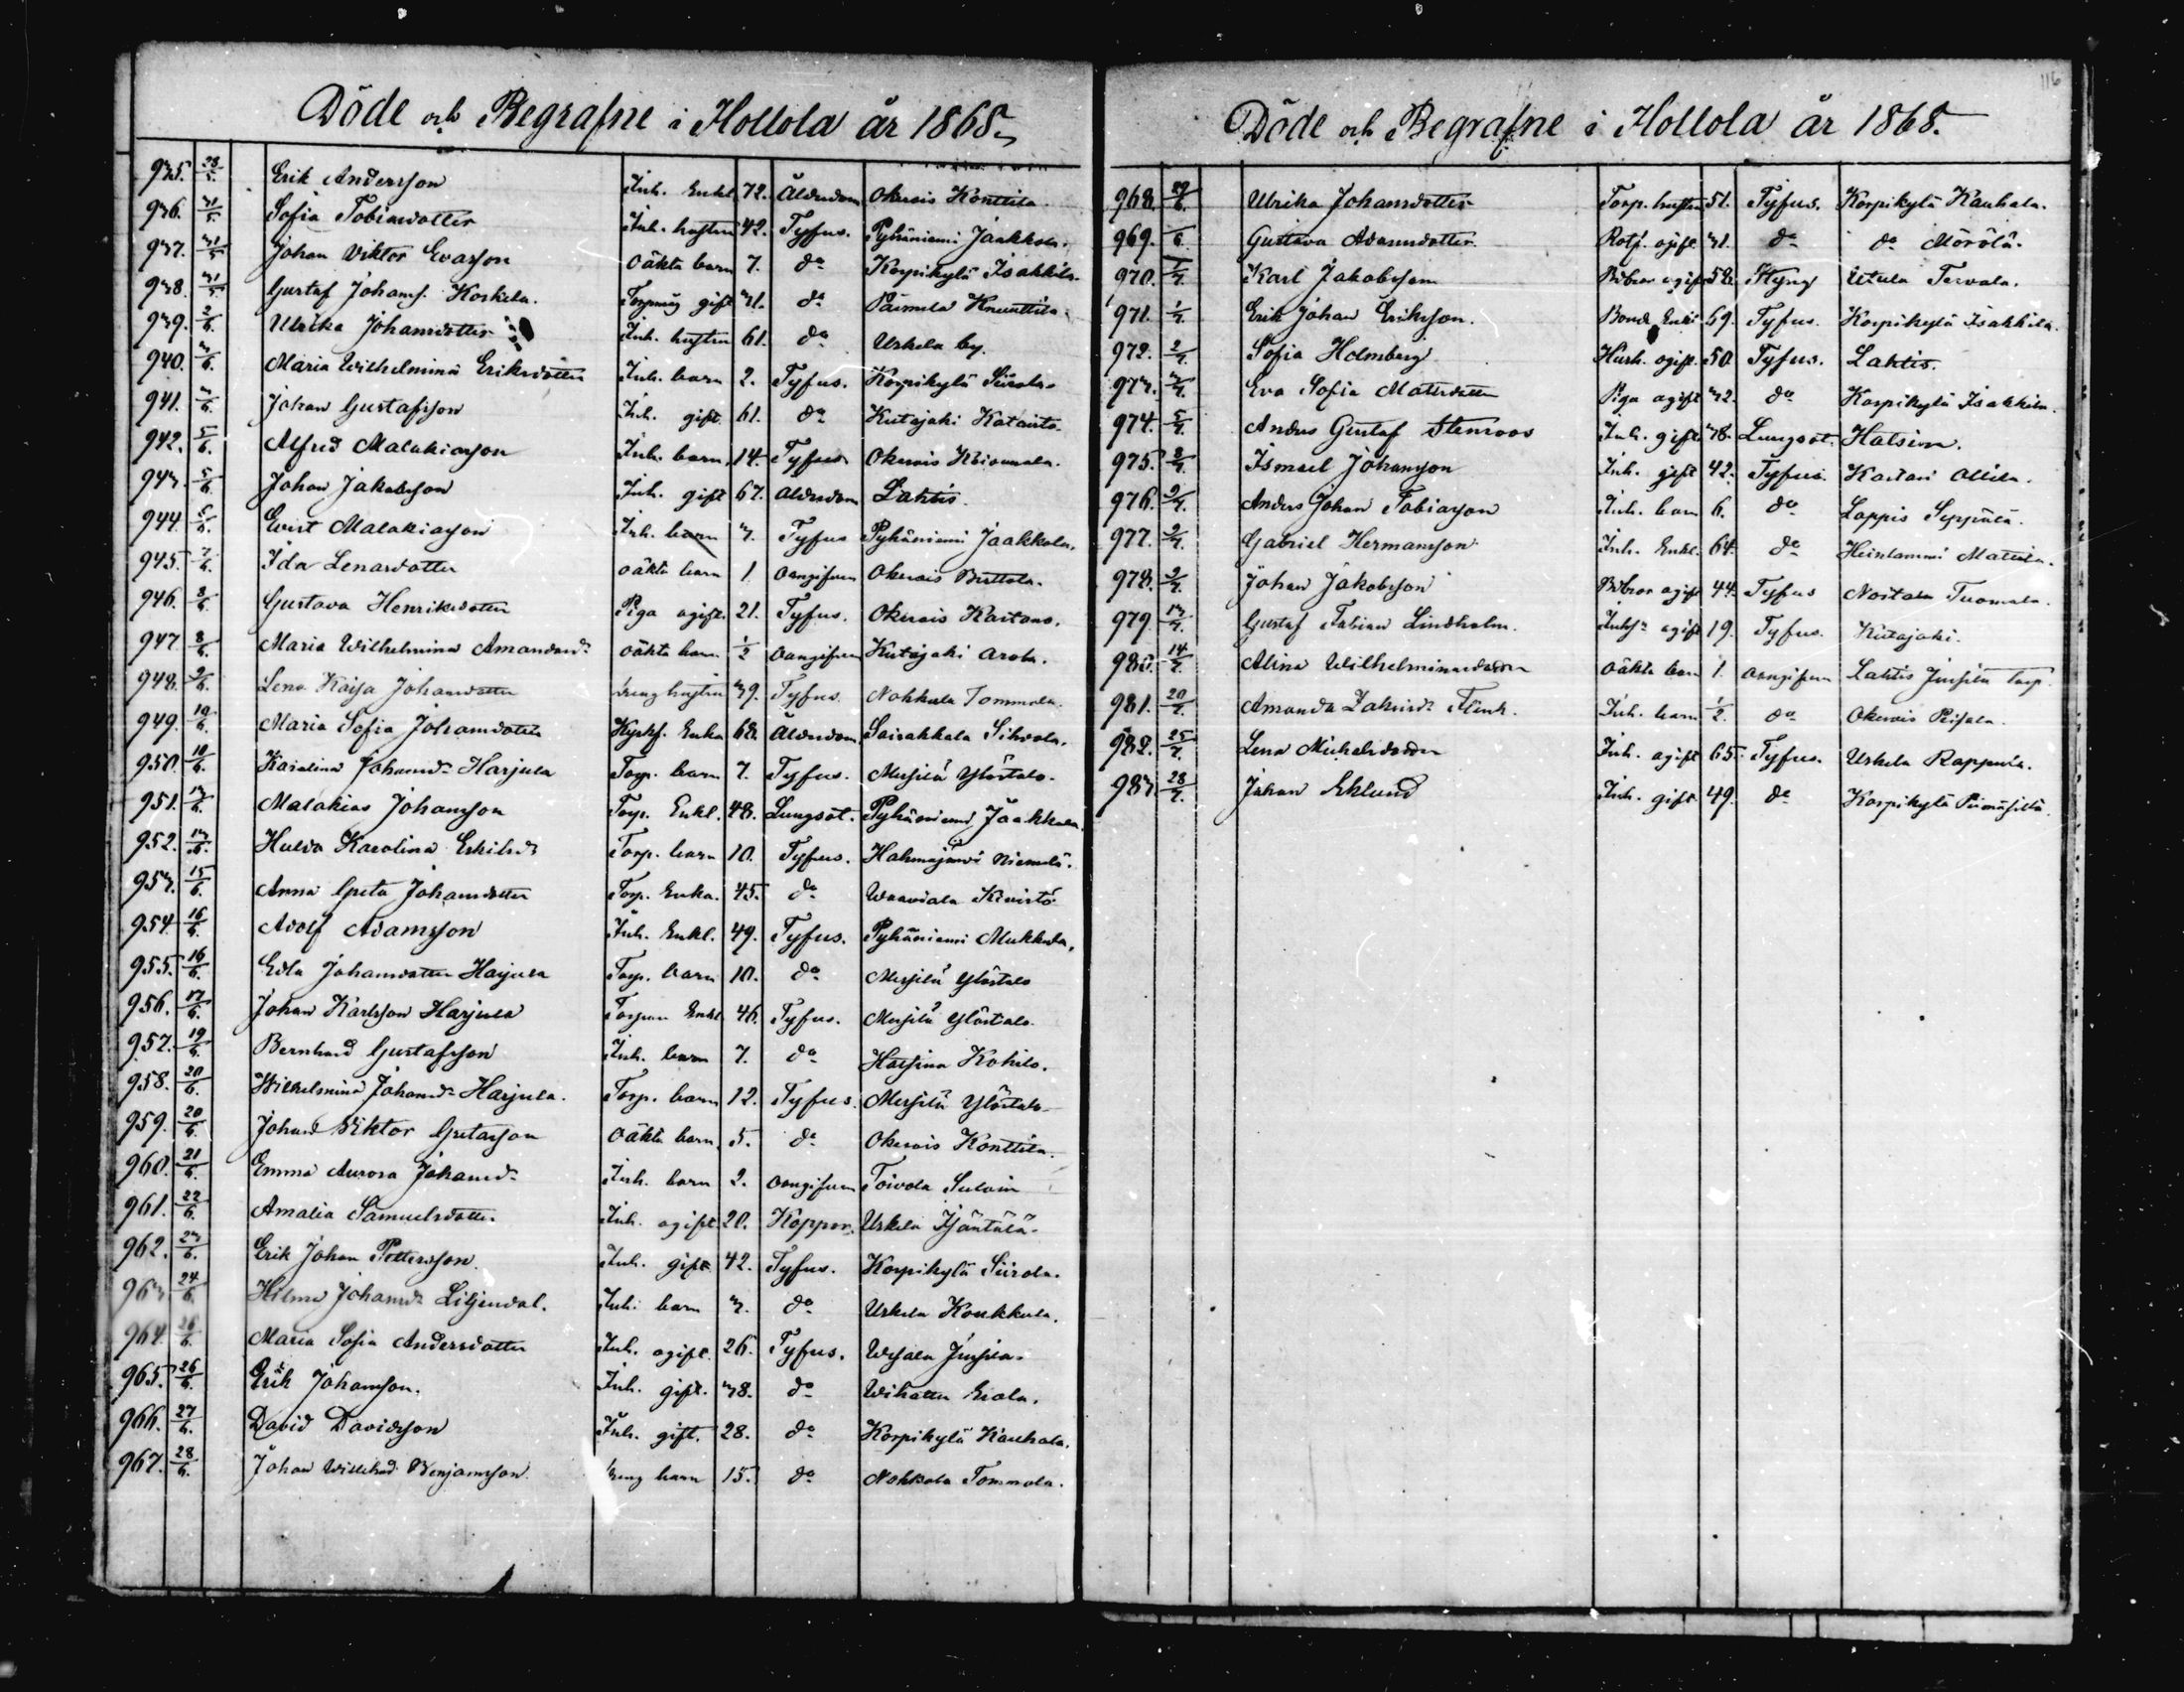 Döde och Begrafne i Hollola år 1868.
935. 28/5. Erik Andersson Inh. Enkl. 72. Ålderdom Okerois Konttila.
936. 31/5. Sofia Tobiasdotter Inh. hustru 42. Tyfus. Pyhäniemi Jaakkola.
937. 31/5 Johan Viktor Evasson Oäkta barn 7. do Korpikylä Isakkila.
938. 31/5 Gustaf Johans. Koskela. gift 31. do Paimela Knuuttila.
939. 2/6. Ulrika Johansdotter Inh. hustru 61. do Urkela by.
940. 3/6. Maria Wilhelmina Eriksdotter Inh. barn 2. Tyfus. Korpikylä Siirola.
941. 3/6. Johan Gustafsson Inh. gift. 61. do Kutajoki
942. 5/6. Alfred Malakiasson Inh. barn 14. Tyfus Okerois
943. 5/6. Johan Jakobsson Inh. gift 67. Ålderdom Lahtis.
944. 5/6. Evert Malakiasson Inh. barn 3. Tyfus Pyhäniemi Jaakkola.
945. 7/6. Ida Lenasdotter oäkta barn 1 Oangifven Okerois Perttola.
946. 8/6. Gustava Henriksdotter Piga ogift. 21. Tyfus. Okerois
947. 8/6. Maria Wilhelmina Amandasdr oäkta barn 1/2 Oangifven Kutajoki Arola.
948. 9/6. Lena Kaisa Johansdotter dreng hustru 39. Tyfus. Nokkola Tommola.
949. 10/6 Maria Sofia Johansdotter Enka 68. Ålderdom. Sairakkala Sihvola.
950. 10/6. Karolina Johansdr Harjula Torp. barn 7. Tyfus. Messilä Ylöstalo.
951. 13/6. Malakias Johansson Torp. Enkl. 48. Lungsot. Pyhäniemi Jaakkola.
952. 13/6. Hulda Karolina Eskilsdr Torp. barn 10. Tyfus. Hahmajärvi Niemelä.
953. 15/6. Anna Greta Johansdotter Torp. Enka. 45. do Waavola Kivistö
954. 16/6. Adolf Adamsson Inh. Enkl. 49. Tyfus. Pyhäniemi Mukkula.
955. 16/6. Edla Johansdotter Harjula Torp. barn 10. do Messilä Ylöstalo
956. 17/6. Johan Karlsson Harjula Torpare Enkl 46. Tyfus. Messilä Ylöstalo.
957. 19/6. Bernhard Gustafsson Inh. barn 7. do Hatsina Kohilo.
958. 20/6. Wilhelmina Johansdr Harjula. Torp. barn 12. Tyfus. Messilä Ylöstalo
959. 20/6. Johan Viktor Gretasson Oäkta barn 5. do Okerois Konttila.
960. 21/6. Emma Aurora Johansdr Inh. barn 2. Oangifven Toivola
961. 22/6. Amalia Samuelsdotter Inh. ogift 20. Koppor. Urkela Jäntälä.
962. 23/6. Erik Johan Pettersson. Inh. gift. 42. Tyfus. Korpikylä Siirola.
963. 24/6. Hilma Johansdr Liljendal. Inh. barn 3. do Urkela Koukkula.
964. 26/6. Maria Sofia Andersdotter Inh. ogift. 26. Tyfus. Wesala Jussila.
965. 26/6. Erik Johansson. Inh. gift. 38. do Wihattu Erola.
966. 27/6. David Davidsson Inh. gift. 28. do Korpikylä Kauhala.
967. 28/6. Johan Willehad Benjamsson. dreng barn 15. do Nokkola Tommola.
116
Döde och Begrafne i Hollola år 1868.
968. 29/6. Ulrika Johansdotter Torp. hustru 51. Tyfus. Korpikylä Kauhala.
969. /6. Gustava Adamsdotter Rotf. ogift 31. do do Mörölä.
970. 1/7. Karl Jakobsson ogift 58. Styng Utula Tervala.
971. 1/7. Erik Johan Eriksson. Bonde Enkl 69. Tyfus. Korpikylä Isakkila.
972. 2/7. Sofia Holmberg Hush. ogift. 50 Tyfus. Lahtis.
973. 3/7. Eva Sofia Matsdotter Piga ogift 32. do Korpikylä Isakkila.
974. 5/7. Anders Gustaf Stenroos Inh. gift 38. Lungsot. Hatsina.
975. 8/7. Ismael Johansson Inh. gift 42. Tyfus. Kastari Ollila.
976. 9/7. Anders Johan Tobiasson Inh. barn 6. do Loppis Seppälä.
977. 9/7. Gabriel Hermansson Inh. Enkl. 64. do Heinlammi Mattila.
978. 9/7. Johan Jakobsson ogift 44. Tyfus Noitala Tuomala.
979. 13/7. Gustaf Fabian Lindholm. ogift 19. Tyfus. Kutajoki.
980. 14/7. Alina Wilhelminasdotter Oäkta barn 1. Oangifven Lahtis Jussila torp.
981. 20/7. Amanda Flink. Inh. barn 1/2. do Okerois
982. 25/7. Lena Michelsdotter Inh. ogift 65. Tyfus. Urkela
983. 28/7. Johan Eklund Inh. gift 49. do Korpikylä